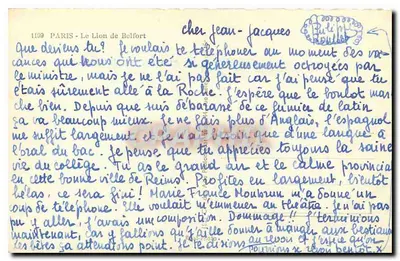 1199 PARIS - Le Lion de Belfort
cher Jean-Jacques
que deviens tu? Je voulais te téléphoner au moment des va-
cances qui nous ont été si généreusement octroyées par
le ministre, mais je ne l'ai pas fait car j'ai pensé que tu
étais sûrement allé à la Roche. J'espère que le boulot mar-
che bien. Depuis que suis débarassé de ce fumier de latin
ça va beaucoup mieux. Je ne fais plus d'Anglais, l'espagnol
me suffit largement et je n'ai besoin que d'une langue à
l'oral du bac. Je pense que tu apprécies toujours la saine
vie du collège. Tu as le grand air et le calme provincial
en cette bonne ville de Reims. Profites en largement, bientôt
hélas, ce sera fini! Marie France m'a donné un
coup de téléphone. Elle voulait m'emmener au théâtre. Je n'ai pas
pu y aller, j'avais une composition. Dommage!! Je terminais
maintenant, car il fallait qu'j'aille donner à manger aux bestiaux
les bêtes ça attend point. Je te disions au revoir et j'espère qu'on